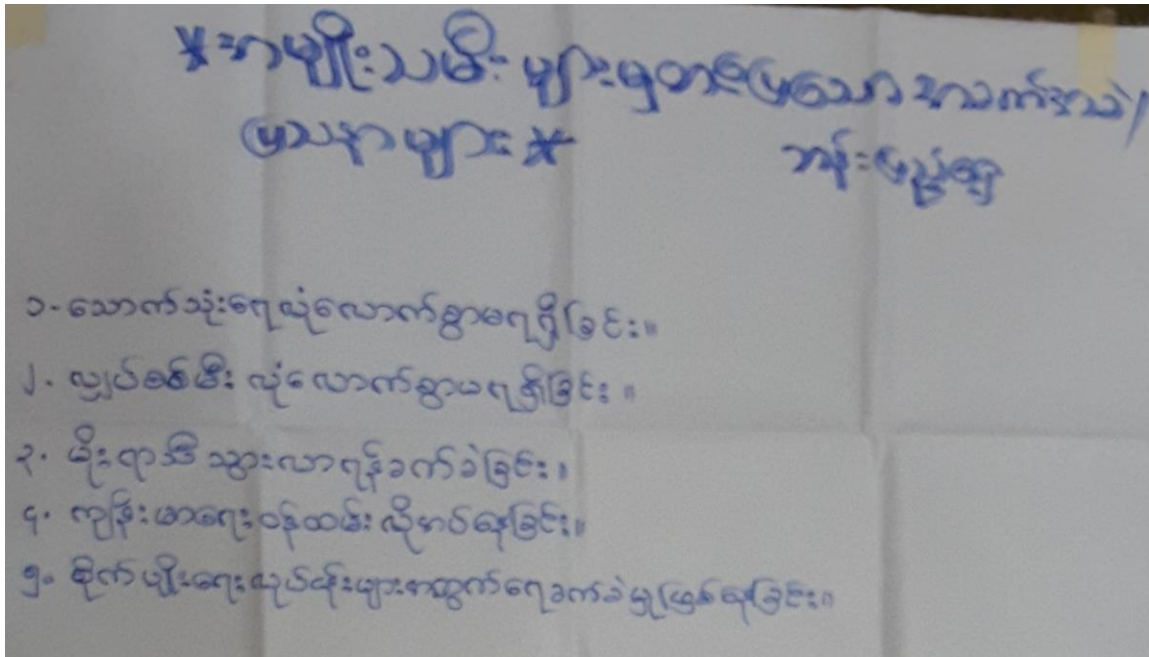 * အမျိုးသမီးများမှတင်ပြသော အခက်အခဲ/
ပြဿနာများ *
ဘန်းပြည့်ရွာ
၁- သောက်သုံးရေလုံလောက်စွာမရရှိခြင်း။
၂. လျှပ်စစ်မီး လုံလောက်စွာမရရှိခြင်း။
၃. မိုးရာသီ သွားလာရန်ခက်ခဲခြင်း။
၄. ကျန်းမာရေးဝန်ထမ်း လိုအပ်နေခြင်း။
၅. စိုက်ပျိုးရေးလုပ်ငန်းများအတွက်ရေခက်ခဲမှုဖြစ်နေခြင်း။